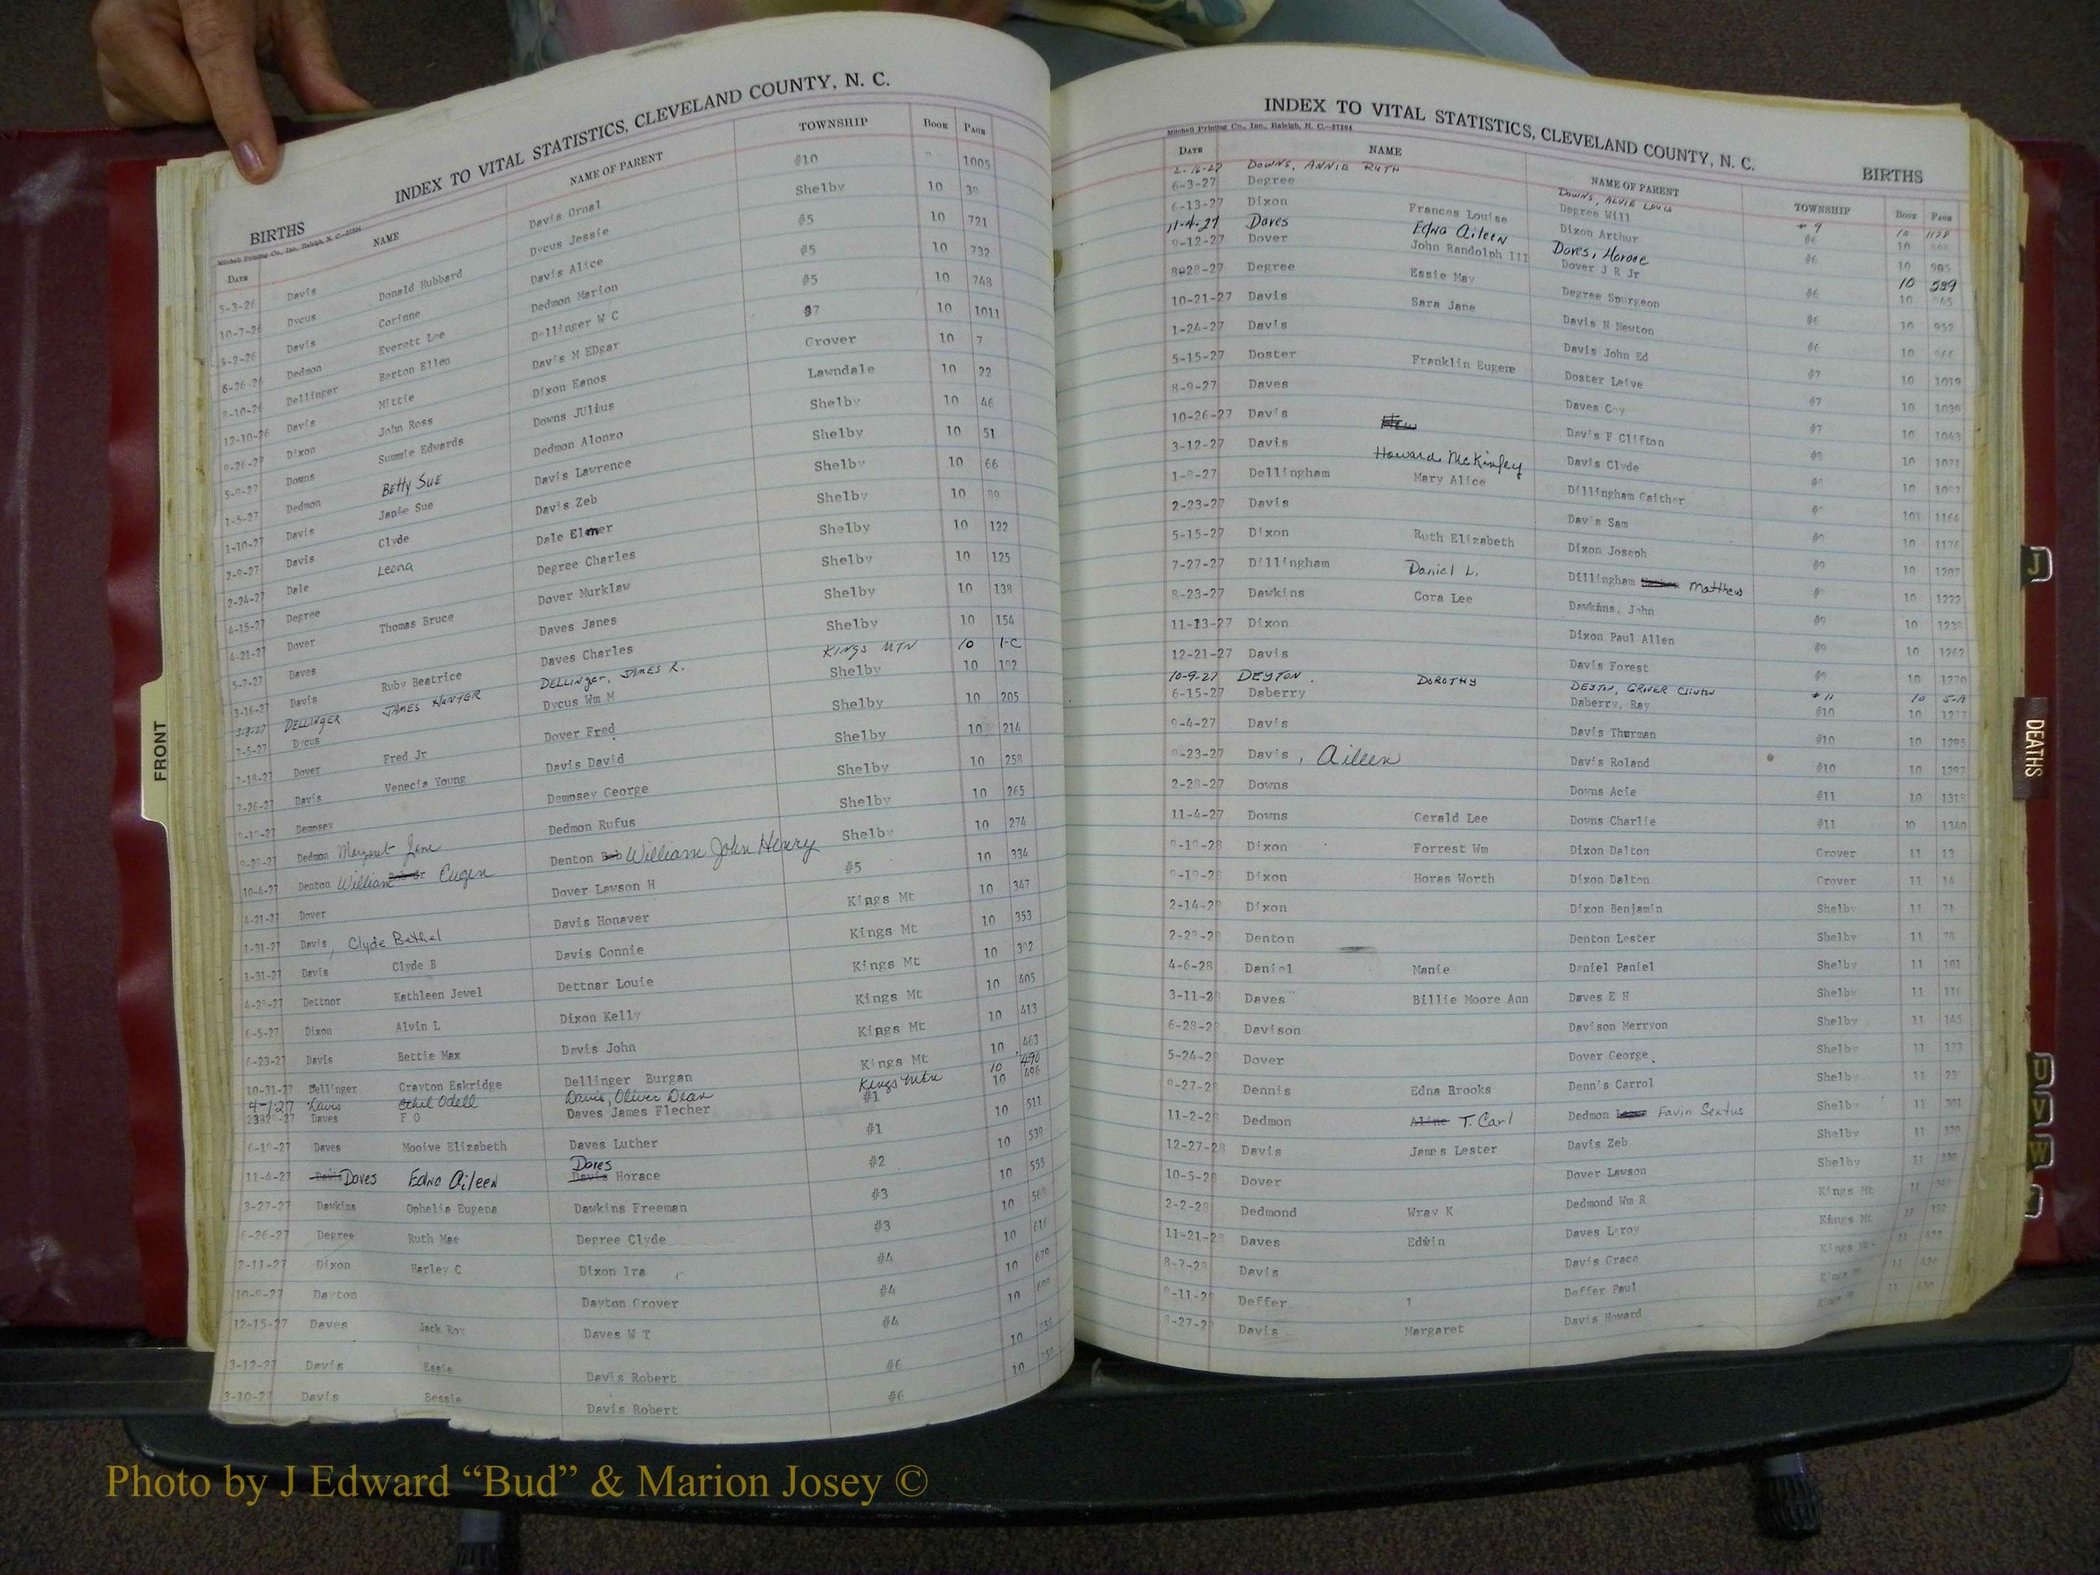 INDEX TO VITAL STATISTICS, CLEVELAND COUNTY, N. C.
BIRTHS
DATE NAME NAME OF PARENT TOWNSHIP BOOK PAGE
5-3-26 Davis Donald Hubbard Davis Ornal #10 1005
10-7-26 Dycus Corinne Dycus Jessie Shelby 10 30
Davis Everett Lee Davis Alice #5 10 721
6-26-26 Dedmon Berton Ellen Dedmon Marion #5 10 732
8-10-26 Dellinger Mittie Dellinger W C #5 10 743
12-10-26 Davis John Ross Davis M EDgar 10 1011
Dixon Summie Edwards Dixon Eanos Grover 10 7
5-9-27 Downs Betty Sue Downs JUlius Lawndale 10 22
1-5-27 Dedmon Janie Sue Dedmon Alonzo Shelby 10 46
1-10-27 Davis Clyde Davis Lawrence Shelby 10 51
2-9-27 Davis Leona Davis Zeb Shelby 10 66
2-24-27 Dale Dale Elmer Shelby 10
4-15-27 Degree Thomas Bruce Degree Charles Shelby 10 122
4-21-27 Dover Dover Murklaw Shelby 10 125
5-7-27 Daves Ruby Beatrice Daves Janes Shelby 10 138
3-16-27 Davis Daves Charles Shelby 10 154
DELLINGER JAMES HUNTER DELLINGER, JAMES R. KINGS MTN 10 1-C
7-5-27 Dycus Dycus Wm M Shelby 10
7-18-27 Dover Fred Jr Dover Fred Shelby 10 205
7-26-27 Davis Venecia Young Davis David Shelby 10 214
Dempsey Dempsey George Shelby 10 258
Dedmon Margaret Jane Dedmon Rufus Shelby 10 265
10-4-27 Denton William Eugen Denton Bob William John Henry Shelby 10 274
4-21-27 Dover Dover Lawson H #5 10 334
1-31-27 Davis, Clyde Bethel Davis Honaver Kings Mt 10 347
1-31-27 Davis Clyde B Davis Connie Kings Mt 10 353
Dettnor Kathleen Jewel Dettnar Louie Kings Mt 10
6-5-27 Dixon Alvin L Dixon Kelly Kings Mt 10 405
6-23-27 Davis Bettie Max Davis John Kings Mt 10 413
10-31-27 Dellinger Crayton Eskridge Dellinger Burgan Kings Mt 10 463
4-1-27 Davis Ethel Odell Davis, Oliver Dean Kings Mtn 10 490
Daves F O Daves James Flecher #1 10 496
Daves Mooive Elizabeth Daves Luther #1 10 511
11-4-27 Davis Doves Edna Aileen Doves Davis Horace #2 10 539
3-27-27 Dawkins Ophelia Eugena Dawkins Freeman #3 10 555
6-26-27 Degree Ruth Mae Degree Clyde #3 10
2-11-27 Dixon Harley C Dixon Ira #4 10 616
Dayton Dayton Grover #4 10
12-15-27 Daves Jack Roy Daves W T #4 10
3-12-27 Davis Essie Davis Robert #6 10
3-10-27 Davis Bessie Davis Robert #6 10
FRONT
INDEX TO VITAL STATISTICS, CLEVELAND COUNTY, N. C.
Mitchell Printing Co., Inc., Raleigh, N. C.—37304
BIRTHS
DATE NAME NAME OF PARENT TOWNSHIP BOOK PAGE
2-16-27 DOWNS, ANNIE RUTH DOWNS, ALVIE LOUIS #9 10 1128
6-3-27 Degree Frances Louise Degree Will #6 10
6-13-27 Dixon Dixon Arthur #6 10 905
11-4-27 Doves Edna Aileen Doves, Horace 10 539
9-12-27 Dover John Randolph III Dover J R Jr 10
Degree Essie May Degree Spurgeon #6 10 952
10-21-27 Davis Sara Jane Davis N Newton #6 10
1-24-27 Davis Davis John Ed #7 10 1019
5-15-27 Doster Franklin Eugene Doster Leive #7 10 1039
8-9-27 Daves Daves Coy #7 10 1043
10-26-27 Davis Davis F Clifton 10 1071
3-12-27 Davis Howard McKinley Davis Clyde 10
Dellingham Mary Alice Dillingham Gaither 101 1164
2-23-27 Davis Davis Sam 10 1176
5-15-27 Dixon Ruth Elizabeth Dixon Joseph #9 10 1207
7-27-27 Dillingham Daniel L. Dillingham Matthew 10 1222
8-23-27 Dawkins Cora Lee Dawkins, John #9 10
11-13-27 Dixon Dixon Paul Allen #9 10 1262
12-21-27 Davis Davis Forest #9 10 1270
10-9-27 DEYTON DOROTHY DEYTON, GROVER CLINTON #11 10 5-A
6-15-27 Daberry Daberry, Ray #10 10
9-4-27 Davis Davis Thurman #10 10 1295
9-23-27 Davis, Aileen Davis Roland #10 10 1297
2-28-27 Downs Downs Acie #11 10 1313
11-4-27 Downs Gerald Lee Downs Charlie #11 10 1340
Dixon Forrest Wm Dixon Dalton Grover 11 13
Dixon Horas Worth Dixon Dalton Grover 11 14
2-14-28 Dixon Dixon Benjamin Shelby 11 71
Denton Denton Lester Shelby 11 78
4-6-28 Daniel Manie Daniel Paniel Shelby 11 101
3-11-28 Daves Billie Moore Ann Daves E H Shelby 11 116
6-28-28 Davison Davison Merrvon Shelby 11 145
5-24-28 Dover Dover George Shelby 11 173
Dennis Edna Brooks Dennis Carrol Shelby 11
11-2-28 Dedmon Aline T. Carl Dedmon Favin Sextus Shelby 11 301
12-27-28 Davis James Lester Davis Zeb Shelby 11 320
10-5-28 Dover Dover Lawson Shelby 11
2-2-28 Dedmond Wray K Dedmond Wm R Kings Mt 11
11-21-28 Daves Edwin Daves Leroy Kings Mt 11
8-7-28 Davis Davis Grace Kings Mt 11
Deffer Deffer Paul 11
Davis Margaret Davis Howard
J
DEATHS
U
V
W
Photo by J Edward “Bud” & Marion Josey ©